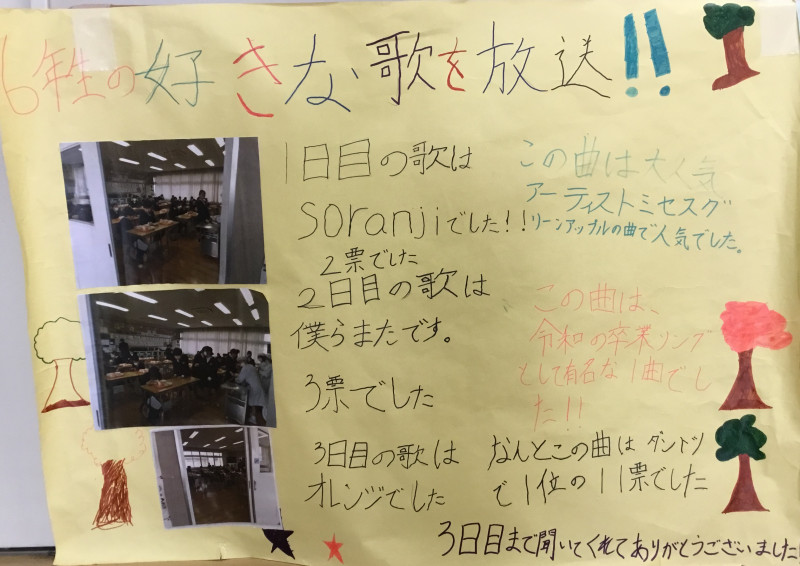 6年生の好きな歌を放送!!
1日目の歌は
soranjiでした!!
2票でした
この曲は大人気
アーティストミセスグ
リーンアップルの曲で人気でした。
2日目の歌は
僕らまたです。
3票でした
この曲は、
令和の卒業ソング
として有名な1曲でし
た!!
3日目の歌は
オレンジでした
なんとこの曲はダントツ
で1位の11票でした
3日目まで聞いてくれてありがとうございました